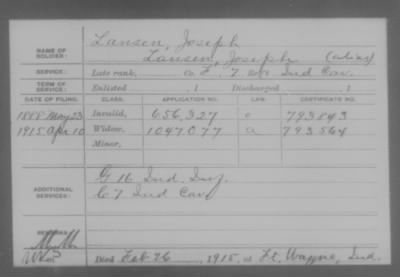 Lansen, Joseph
NAME OF SOLDIER:
Lausen, Joseph (alias)
SERVICE: Late rank, Co. F, 7 Ind Cav.
TERM OF SERVICE: Enlisted , 1 Discharged , 1
DATE OF FILING. CLASS. APPLICATION NO. LAW. CERTIFICATE NO.
1888 May 23 Invalid, 656,327 793843
1915 Apr 10 Widow, 1047077 a 793564
Minor,
ADDITIONAL SERVICES:
G 16 Ind. Inf.
C 7 Ind Cav
REMARKS:
Died Feb 26, 1915, at Ft. Wayne, Ind.